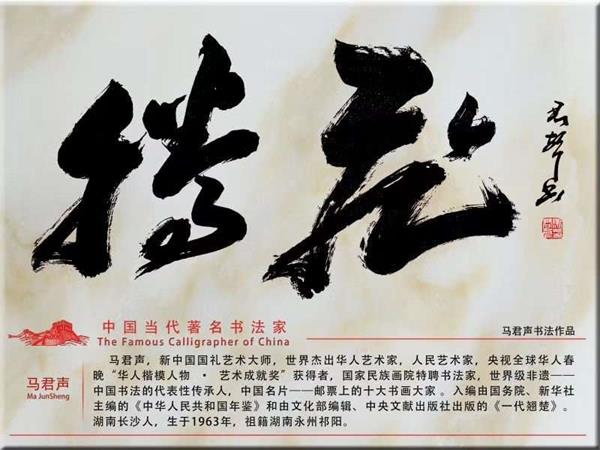 君声书
中国当代著名书法家
The Famous Calligrapher of China
马君声书法作品
马君声
Ma JunSheng
马君声，新中国国礼艺术大师，世界杰出华人艺术家，人民艺术家，央视全球华人春
晚“华人楷模人物 · 艺术成就奖”获得者，国家民族画院特聘书法家，世界级非遗——
中国书法的代表性传承人，中国名片——邮票上的十大书画大家 。入编由国务院、新华社
主编的《中华人民共和国年鉴》和由文化部编辑、中央文献出版社出版的《一代翘楚》。
湖南长沙人，生于1963年，祖籍湖南永州祁阳。